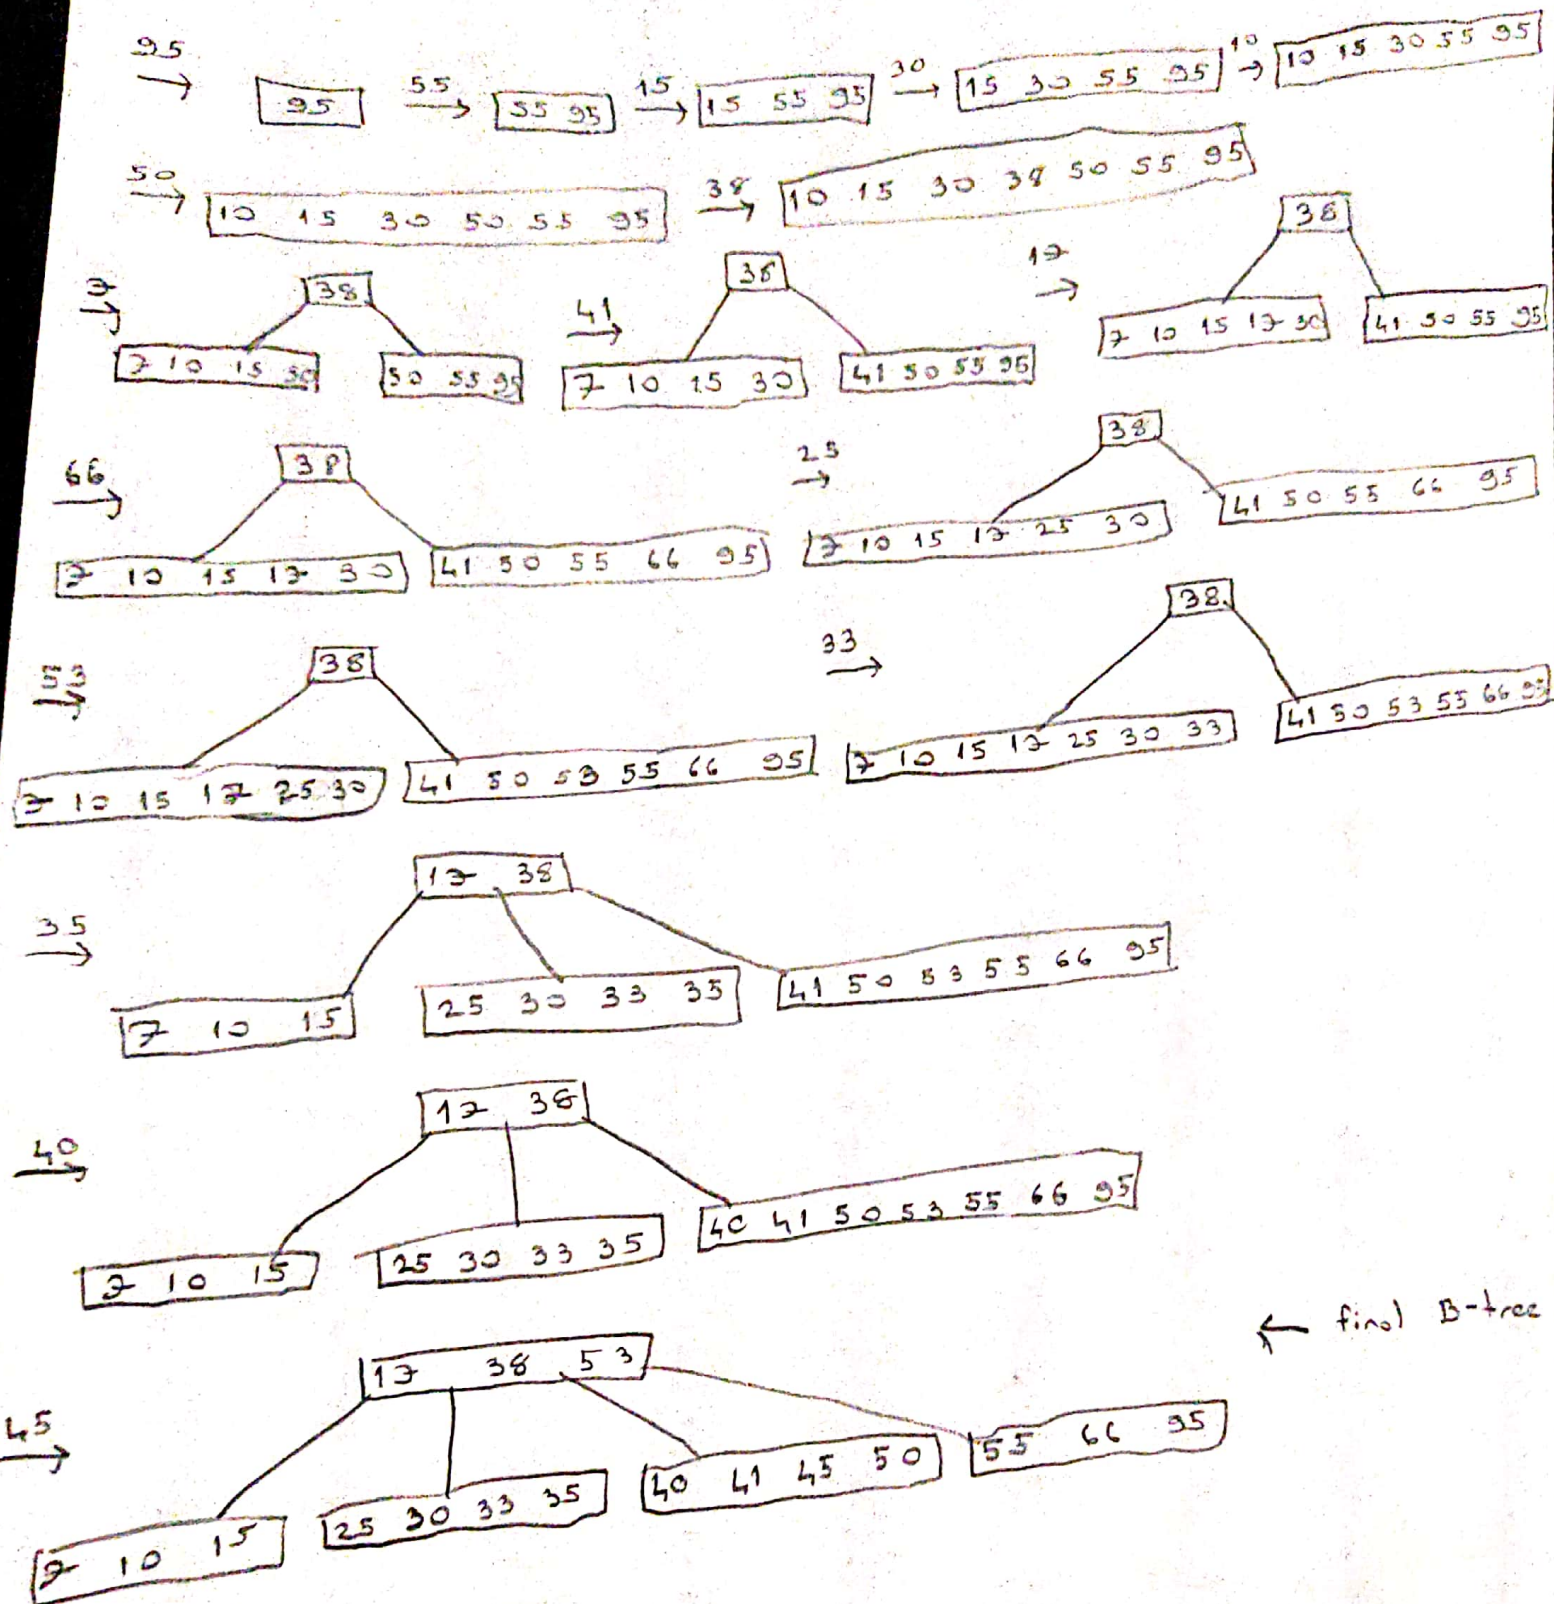 95 → 95 55 → 55 95 15 → 15 55 95 30 → 15 30 55 95 10 → 10 15 30 55 95
50 → 10 15 30 50 55 95 38 → 10 15 30 38 50 55 95
7 → 38 41 → 38 17 → 38
7 10 15 30 50 55 95 7 10 15 30 41 50 55 95 7 10 15 17 30 41 50 55 95
66 → 38 25 → 38
7 10 15 17 30 41 50 55 66 95 7 10 15 17 25 30 41 50 55 66 95
53 → 38 33 → 38
7 10 15 17 25 30 41 50 53 55 66 95 7 10 15 17 25 30 33 41 50 53 55 66 95
35 → 17 38
7 10 15 25 30 33 35 41 50 53 55 66 95
40 → 17 38
7 10 15 25 30 33 35 40 41 50 53 55 66 95
← final B-tree
45 → 17 38 53
7 10 15 25 30 33 35 40 41 45 50 55 66 95